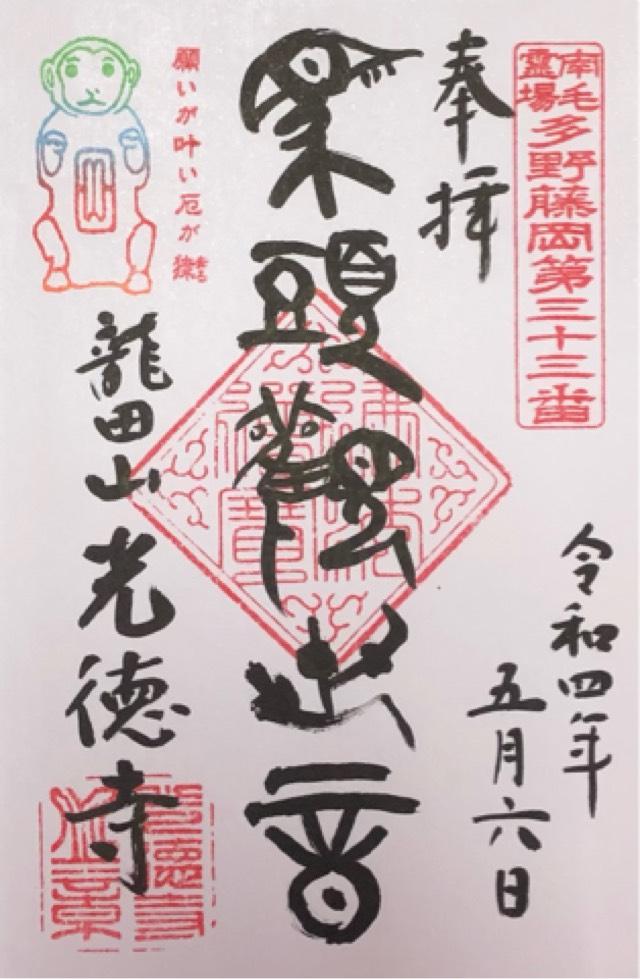 南毛
靈場
多野藤岡第三十三番
奉拝
令和四年
五月六日
馬頭觀世音
佛法僧寶
願いが叶い厄が
龍田山光徳寺